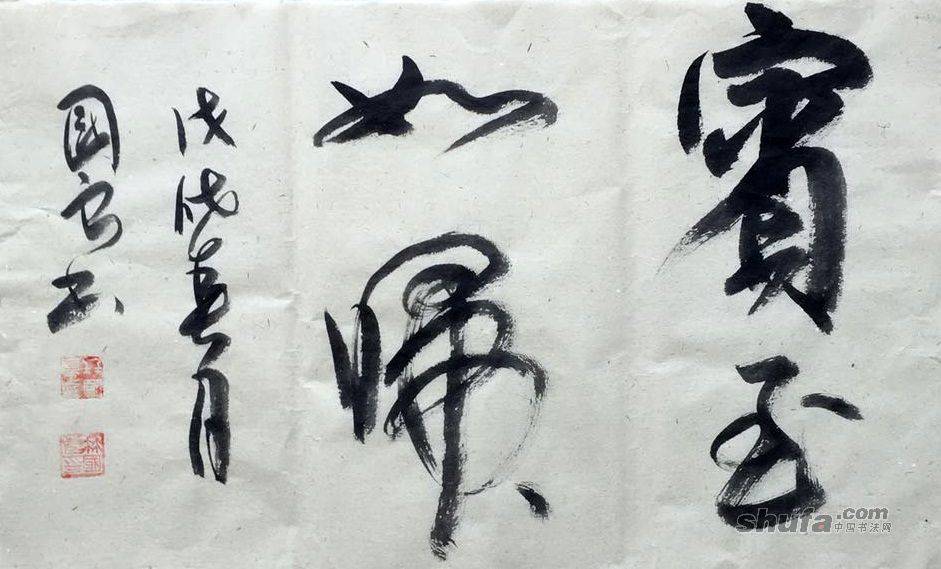 賓至
如歸
戊戌春月
國書
shufa.com
中国书法网